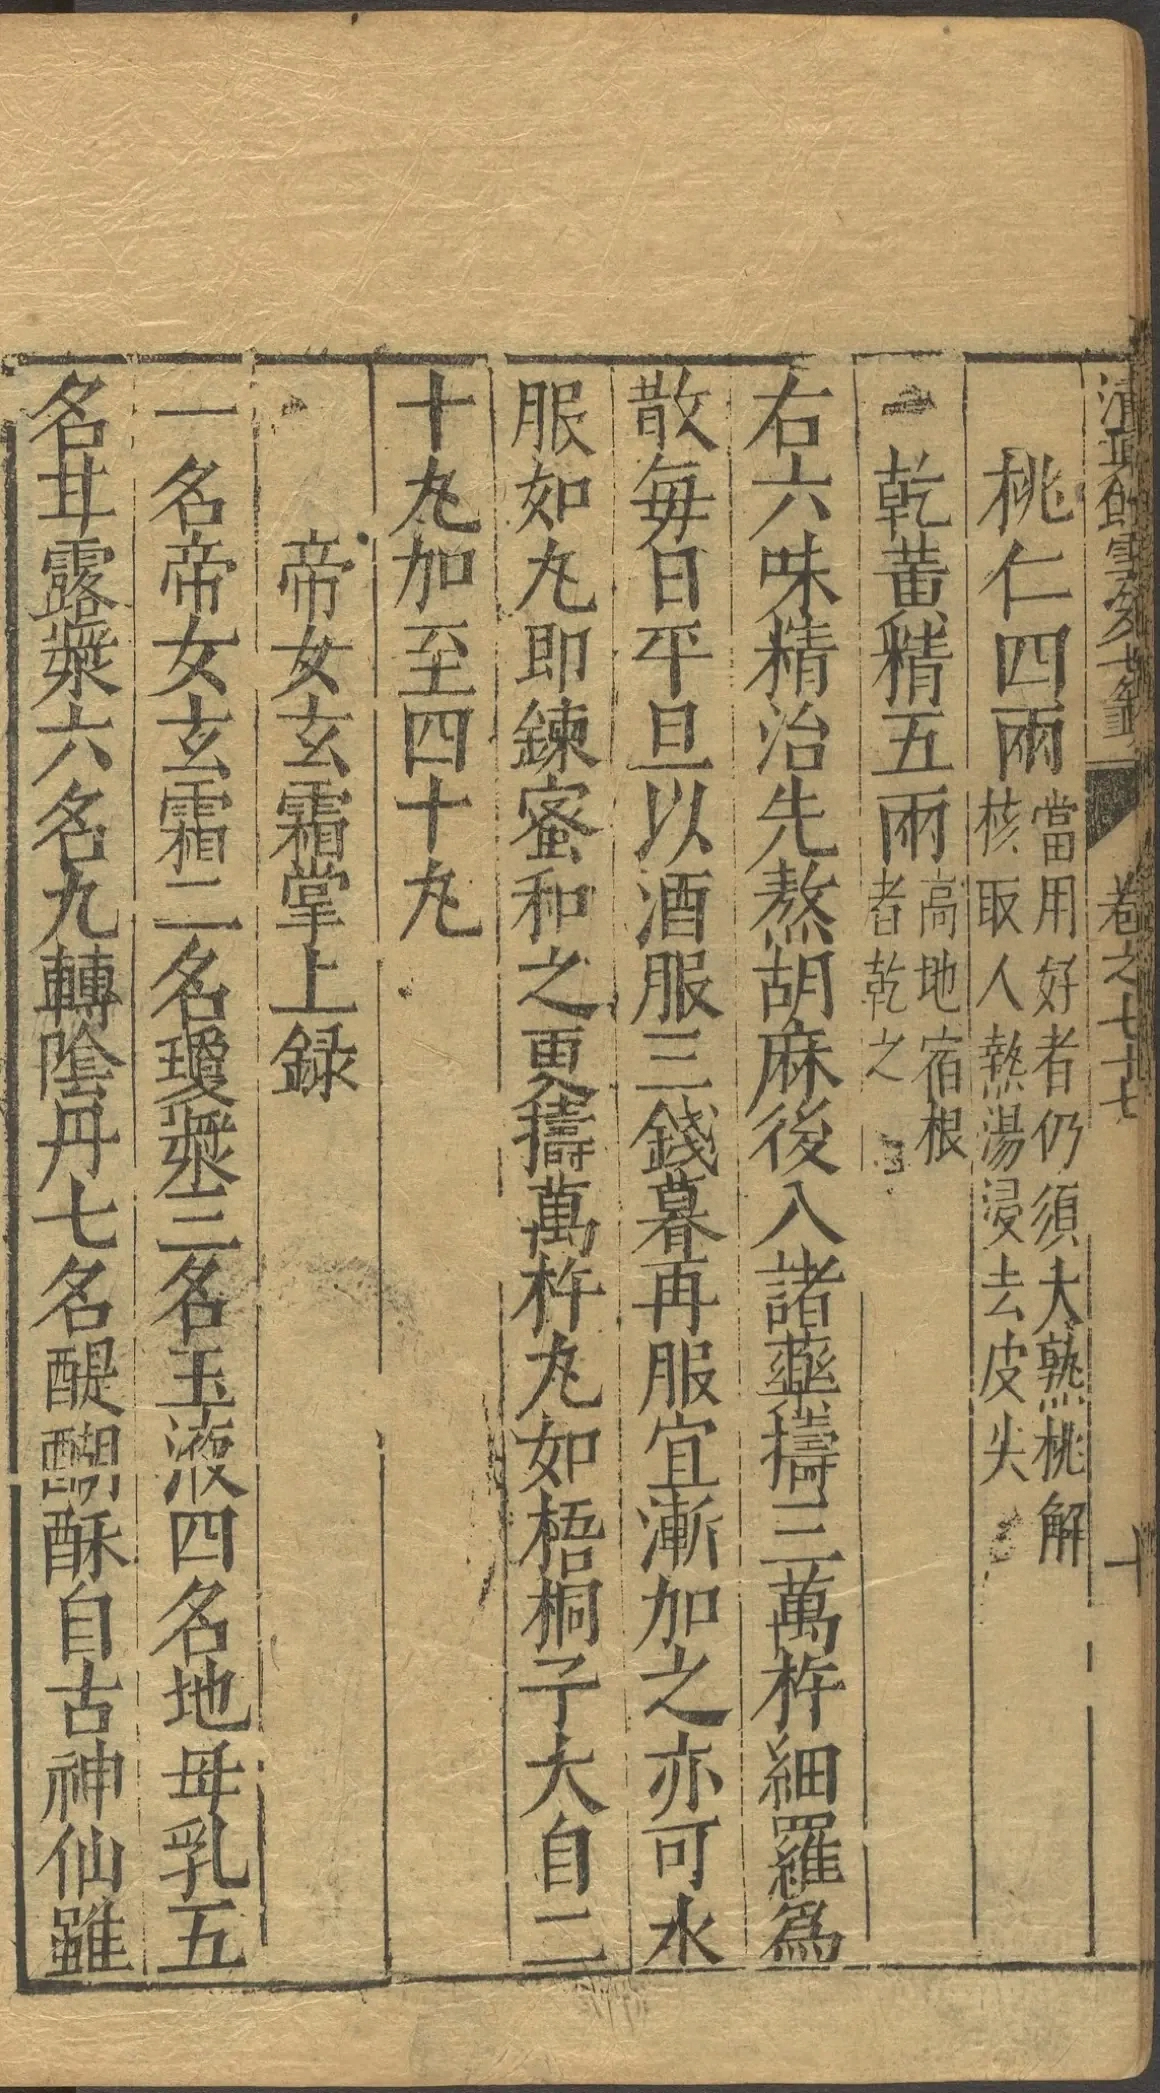 清真館雲笈七籤 卷之七十七 十
桃仁四兩當用好者仍須大熟桃解核取人熱湯浸去皮尖
乾黃精五兩高地宿根者乾之
右六味精治先熬胡麻後入諸藥擣三萬杵細羅爲
散每日平旦以酒服三錢暮再服宜漸加之亦可水
服如丸即鍊蜜和之更擣萬杵丸如梧桐子大自二
十丸加至四十丸
帝女玄霜掌上録
一名帝女玄霜二名瓊漿三名玉液四名地母乳五
名甘露漿六名九轉陰丹七名醍醐酥自古神仙雖